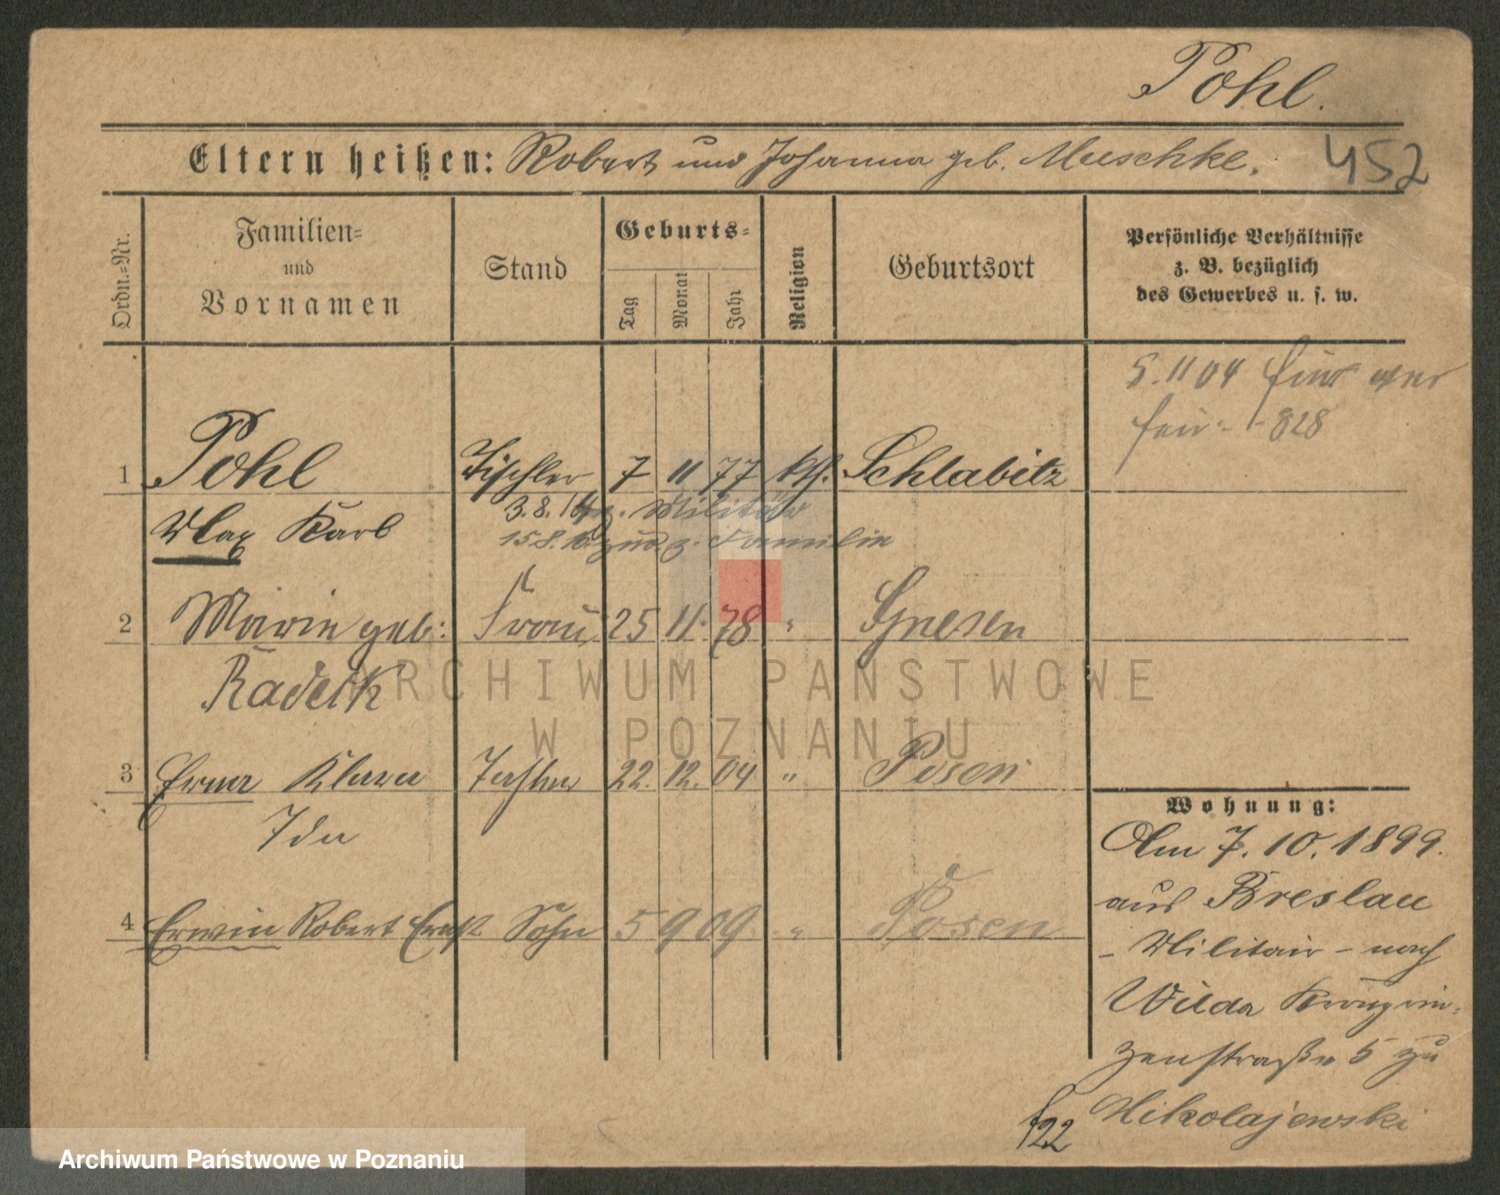 Pohl.
Eltern heißen: Robert und Johanna geb. Muschke.
452
Ordn.-Nr.
Familien-
und
Vornamen
Stand
Geburts-
Tag
Monat
Jahr
Religion
Geburtsort
Persönliche Verhältnisse
z. B. bezüglich
des Gewerbes u. s. w.
5.11 04
828
1 Pohl Tischler 7 11 77 kth. Schlabitz
Max Karl
3.8.14 z. Militär
15.8. zur. z. Familie
2 Marie geb: Frau 25 11. 78 " Gnesen
Radeck
3 Erna Klara Tochter 22. 12. 04 " Posen
Ida
4 Erwin Robert Ernst Sohn 5 9 09 " Posen
Wohnung:
Am 7. 10. 1899.
aus Breslau
- Militair - nach
Wilda Kronprin-
zenstraße 5 zu
Mikolajewski
122
ARCHIWUM PAŃSTWOWE
W POZNANIU
Archiwum Państwowe w Poznaniu